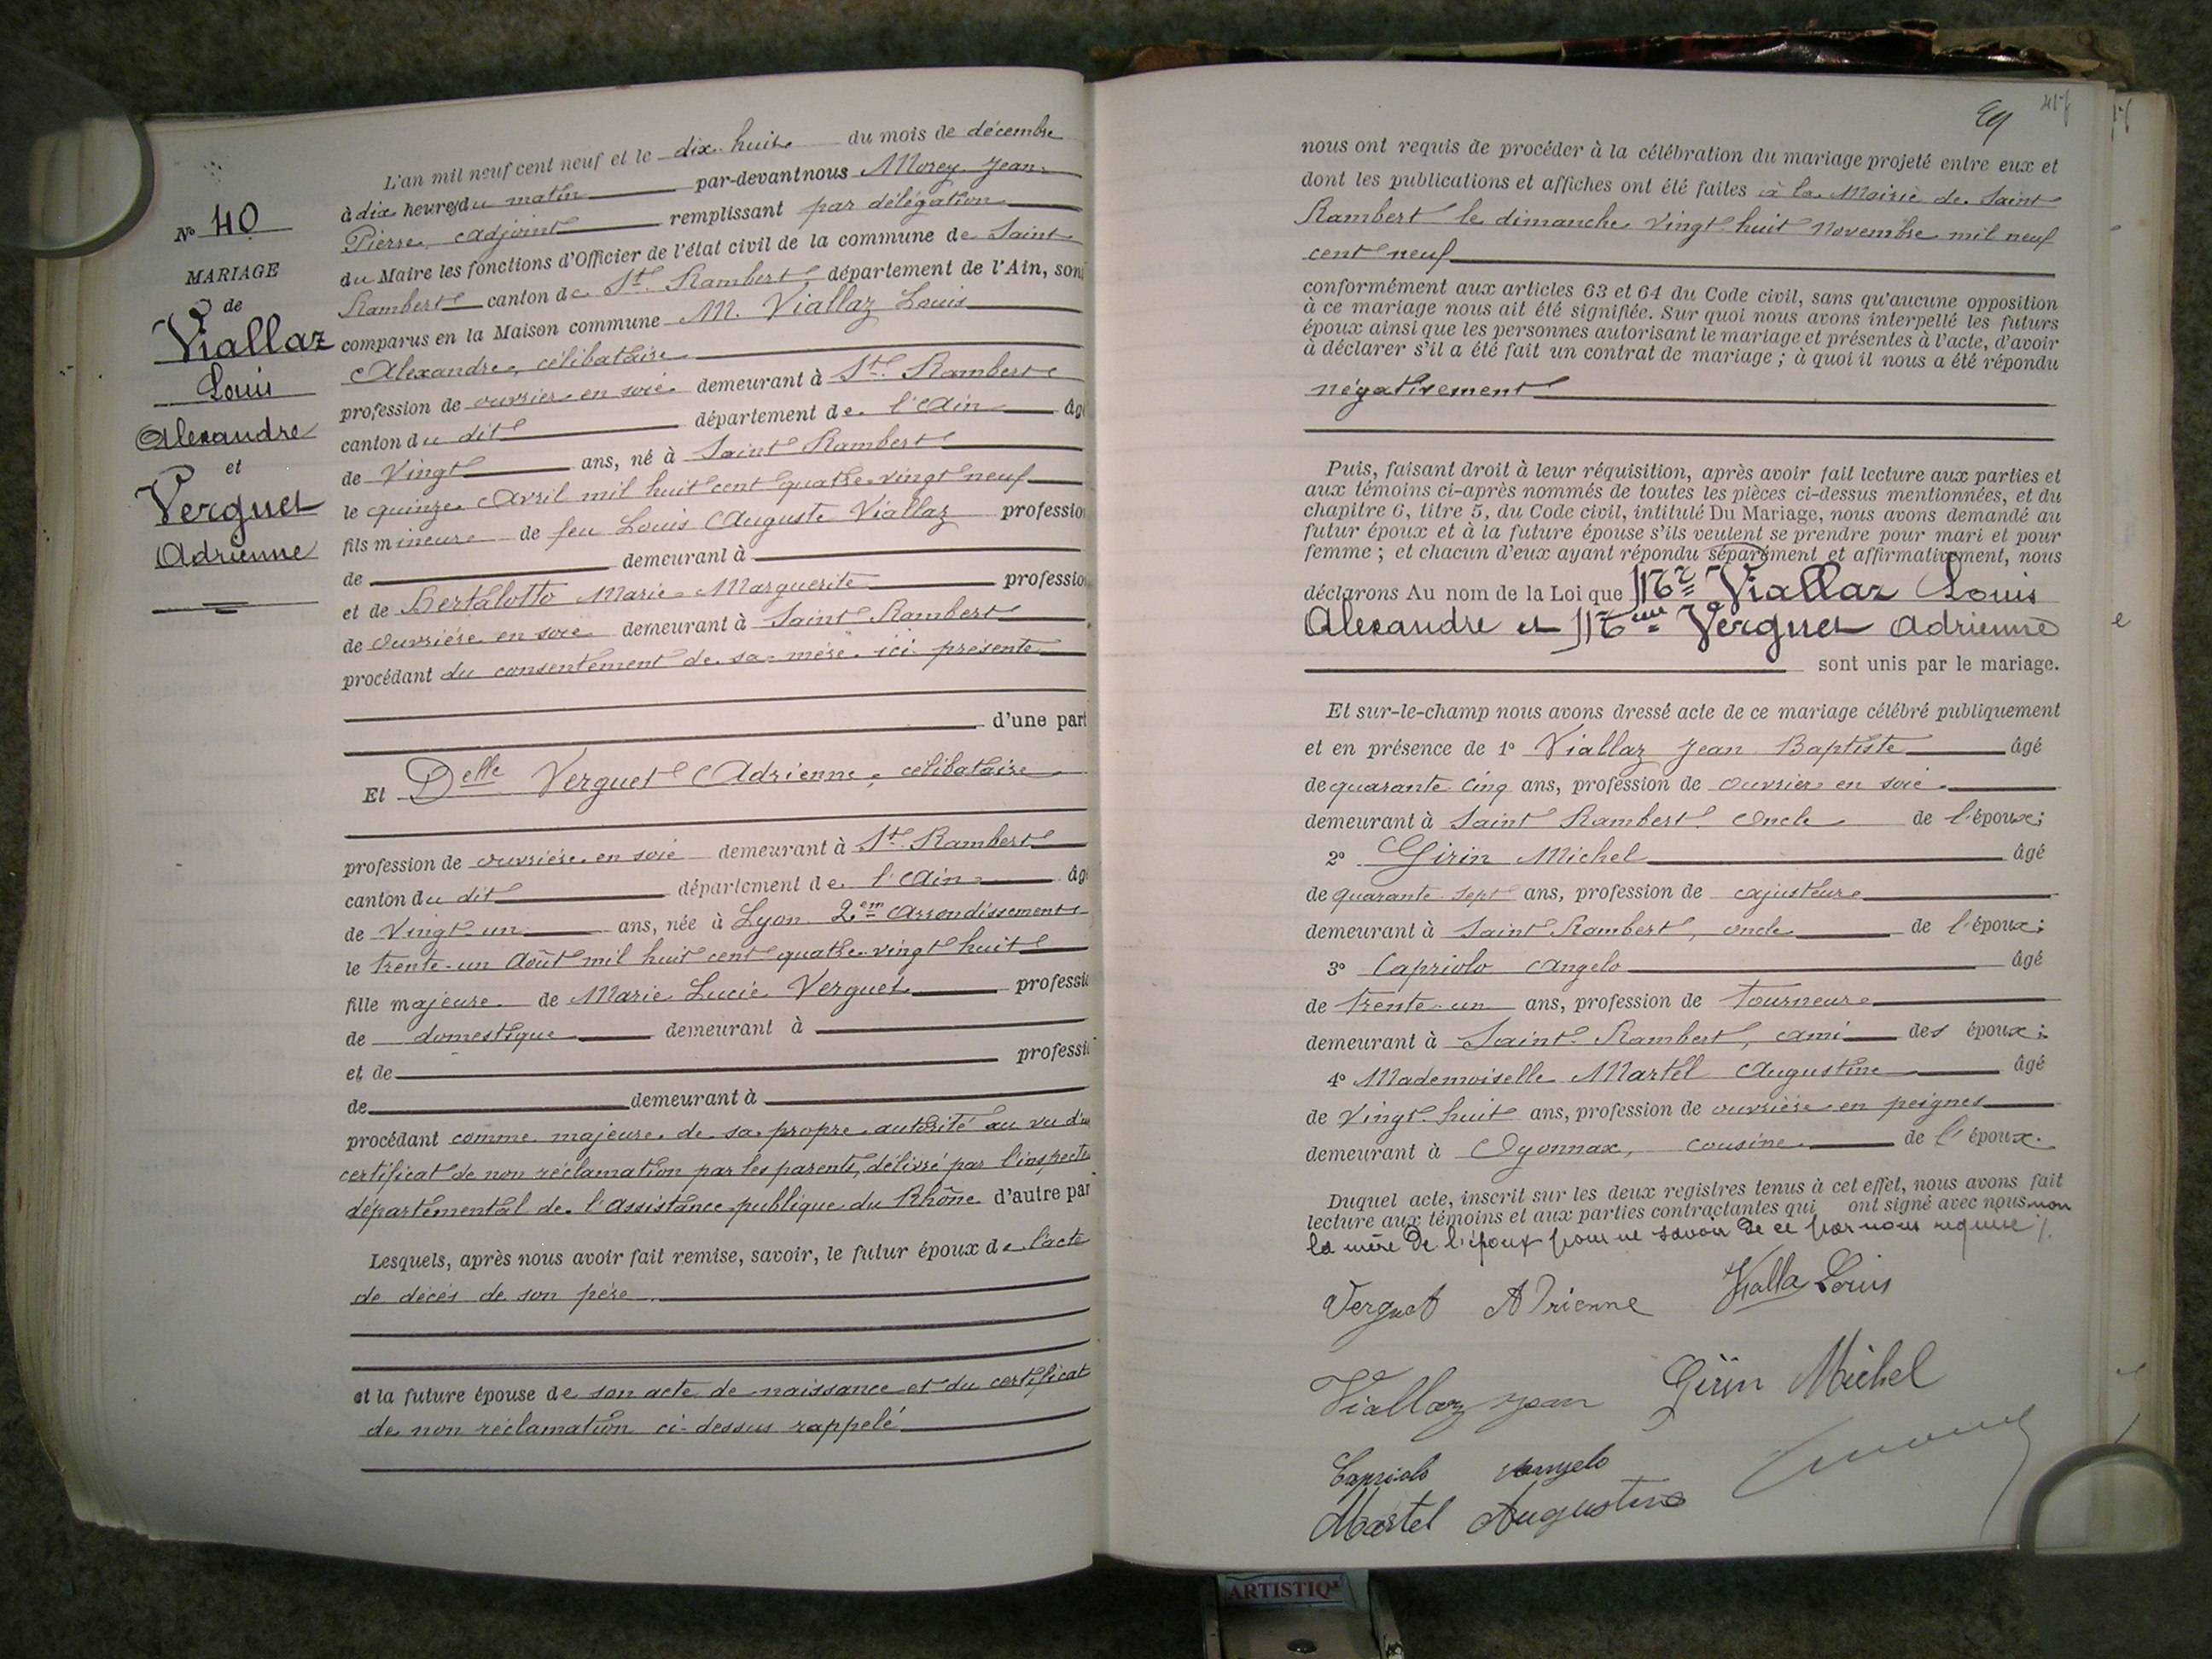 N° 40
MARIAGE
de
Viallaz
Louis
Alexandre
et
Verguet
Adrienne
L'an mil neuf cent neuf et le dix huit du mois de décembre
à dix heures du matin par-devant nous Morey Jean
Pierre, adjoint remplissant par délégation
du Maire les fonctions d'Officier de l'état civil de la commune de Saint
Rambert canton de St. Rambert département de l'Ain, sont
comparus en la Maison commune M. Viallaz Louis
Alexandre, célibataire
profession de ouvrier en soie demeurant à St. Rambert
canton du dit département de l'Ain âgé
de Vingt ans, né à Saint Rambert
le quinze Avril mil huit cent quatre vingt neuf
fils mineur de feu Louis Auguste Viallaz profession
de demeurant à
et de Bertalotto Marie Marguerite profession
de ouvrière en soie demeurant à Saint Rambert
procédant du consentement de sa mère ici présente
d'une part
Et Delle Verguet Adrienne, célibataire
profession de ouvrière en soie demeurant à St. Rambert
canton du dit département de l'Ain âg
de Vingt-un ans, née à Lyon 2em Arrondissement
le trente-un Août mil huit cent quatre-vingt huit
fille majeure de Marie Lucie Verguet professio
de domestique demeurant à
et de professio
de demeurant à
procédant comme majeure de sa propre autorité au vu d'un
certificat de non réclamation par les parents, délivré par l'inspecte
départemental de l'assistance publique du Rhône d'autre par
Lesquels, après nous avoir fait remise, savoir, le futur époux de l'acte
de décès de son père
et la future épouse de son acte de naissance et du certificat
de non réclamation ci-dessus rappelé
417
nous ont requis de procéder à la célébration du mariage projeté entre eux et
dont les publications et affiches ont été faites à la Mairie de Saint
Rambert le dimanche vingt-huit Novembre mil neuf
cent neuf
conformément aux articles 63 et 64 du Code civil, sans qu'aucune opposition
à ce mariage nous ait été signifiée. Sur quoi nous avons interpellé les futurs
époux ainsi que les personnes autorisant le mariage et présentes à l'acte, d'avoir
à déclarer s'il a été fait un contrat de mariage ; à quoi il nous a été répondu
négativement
Puis, faisant droit à leur réquisition, après avoir fait lecture aux parties et
aux témoins ci-après nommés de toutes les pièces ci-dessus mentionnées, et du
chapitre 6, titre 5, du Code civil, intitulé Du Mariage, nous avons demandé au
futur époux et à la future épouse s'ils veulent se prendre pour mari et pour
femme ; et chacun d'eux ayant répondu séparément et affirmativement, nous
déclarons Au nom de la Loi que Mr Viallaz Louis
Alexandre et Melle Verguet Adrienne
sont unis par le mariage.
Et sur-le-champ nous avons dressé acte de ce mariage célébré publiquement
et en présence de 1° Viallaz Jean Baptiste âgé
de quarante cinq ans, profession de ouvrier en soie
demeurant à Saint Rambert Oncle de l'époux;
2° Girin Michel âgé
de quarante sept ans, profession de ajusteur
demeurant à Saint Rambert, oncle de l'époux;
3° Capriolo Angelo âgé
de trente-un ans, profession de Tourneur
demeurant à Saint-Rambert, ami des époux;
4° Mademoiselle Martel Augustine âgé
de Vingt-huit ans, profession de ouvrière en peignes
demeurant à Oyonnax, cousine de l'époux.
Duquel acte, inscrit sur les deux registres tenus à cet effet, nous avons fait
lecture aux témoins et aux parties contractantes qui ont signé avec nous non
la mère de l'époux pour ne savoir de ce par nous requise
Verguet Adrienne Vialla Louis
Viallaz Jean Girin Michel
Capriolo Angelo
Martel Augustine
ARTISTIQ